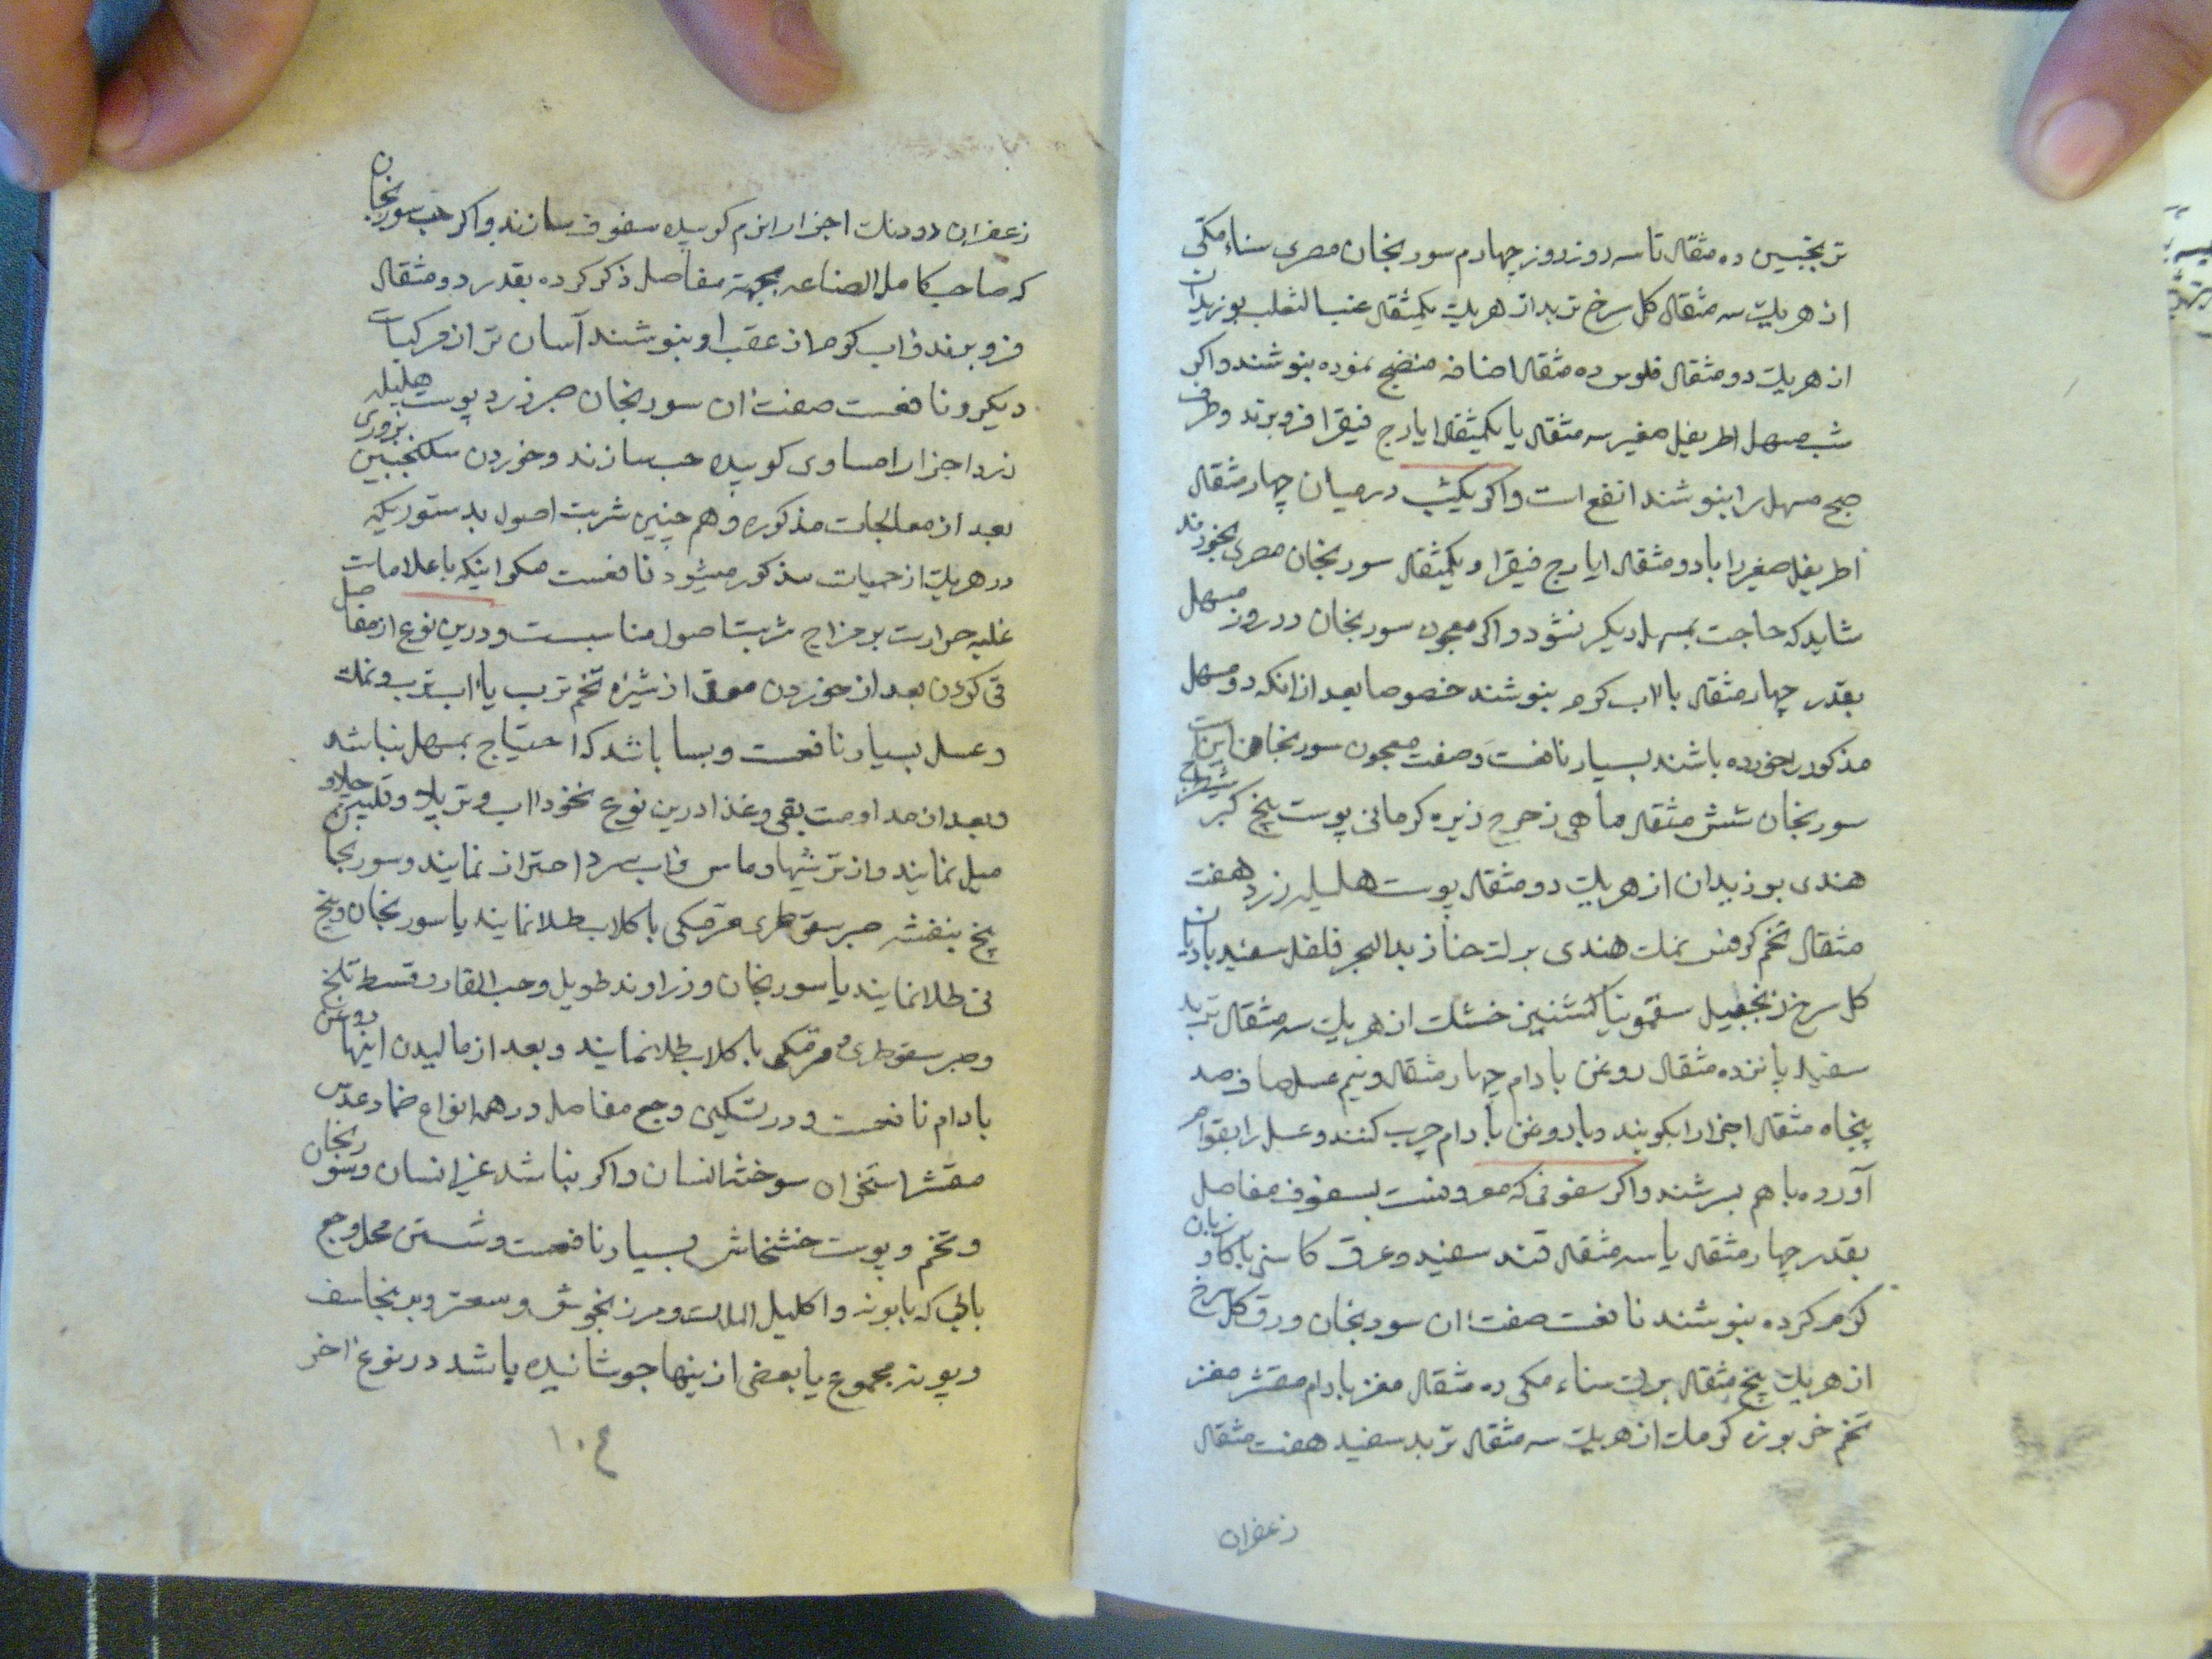 ترنجبین ده مثقال تا سه روز روز چهارم سورنجان مصری سناء مکی
از هریک سه مثقال کل سرخ تربد از هریک یکمثقال عنب الثعلب بوزیدان
از هریک دو مثقال فلوس ده مثقال اضافه منضج نموده بنوشند و اکر
شب مسهل اطریفل صغیر سه مثقال یا یکمثقال ایارج فیقرا فرو برند و طرف
صبح مسهل را بنوشند انفع است و اکر یکشب در میان چهار مثقال
اطریفل صغیر را با دو مثقال ایارج فیقرا و یکمثقال سورنجان مصری بخورند
شاید که حاجت بمسهل دیکر نشود و اکر معجون سورنجان در روز مسهل
بقدر چهار مثقال با آب کرم بنوشند خصوصا بعد از انکه دو مسهل
مذکور را خورده باشند بسیار نافعست و صفت معجون سورنجان اینست
سورنجان شش مثقال ماهی زهرج زیره کرمانی پوست بیخ کبر شیطرج
هندی بوزیدان از هریک دو مثقال پوست هلیله زرد هفت
مثقال تخم کرفس نمک هندی برک حنا زبد البحر فلفل سفید بادیان
کل سرخ زنجبیل سقمونیا کشنیز خشک از هریک سه مثقال تربد
سفید پانزده مثقال روغن بادام چهار مثقال و نیم عسل صاف صد
پنجاه مثقال اجزا را بکوبند و با روغن بادام چرب کنند و عسل را بقوام
آورده با هم بسرشند و اکر سفوفی که معروفست بسفوف مفاصل
بقدر چهار مثقال یا سه مثقال قند سفید و عرق کاسنی با کاو زبان
کرم کرده بنوشند نافعست صفت ان سورنجان ورق کل سرخ
از هریک پنج مثقال برک سناء مکی ده مثقال مغز بادام مقشر مغز
تخم خربوزه کرمک از هریک سه مثقال تربد سفید هفت مثقال
زعفران
زعفران دو دنک اجزا را نرم کوبیده سفوف سازند و اکر حب سورنجان
که صاحب کامل الصناعه بجهة مفاصل ذکر کرده بقدر دو مثقال
فرو برند و آب کرم از عقب او بنوشند آسان تر از مرکبات
دیکر و نافعست صفت ان سورنجان صبر زرد پوست هلیله
زرد اجزا را مساوی کوبیده حب سازند و خوردن سکنجبین بزوری
بعد از معالجات مذکوره و هم چنین شربت اصول بدستوریکه
در هریک از حمیات مذکور میشود نافعست مکر اینکه با علامات
غلبه حرارت بر مزاج شربت اصول مناسبست و درین نوع از مفاصل
قی کردن بعد از خوردن مرق از شیره تخم ترب یا آب ترب و نمک
و عسل بسیار نافعست و بسا باشد که احتیاج بمسهل نباشد
و بعد از مداومت بقی و غذا درین نوع نخود آب و تر پلاو و قلیه چلاو
میل نمایند و از ترشیها و ماس و آب سرد احتراز نمایند و سورنجان
بیخ بنفشه صبر سقوطری مر مکی با کلاب طلا نمایند یا سورنجان و بیخ
نی طلا نمایند یا سورنجان و زراوند طویل و حب الغار و قسط تلخ
و صبر سقوطری و مر مکی با کلاب طلا نمایند و بعد از مالیدن اینها روغن
بادام نافعست و در تسکین وجع مفاصل در همه انواع ضماد عدس
مقشر استخوان سوخته انسان و اکر نباشد غیر انسان و سورنجان
و تخم و پوست خشخاش بسیار نافعست و شستن محل وجع
بآبی که بابونه و اکلیل الملک و مرزنجوش و سعتر و برنجاسف
و پونه مجموع یا بعضی ازینها جوشانیده باشد در نوع اخر
۱۰۴